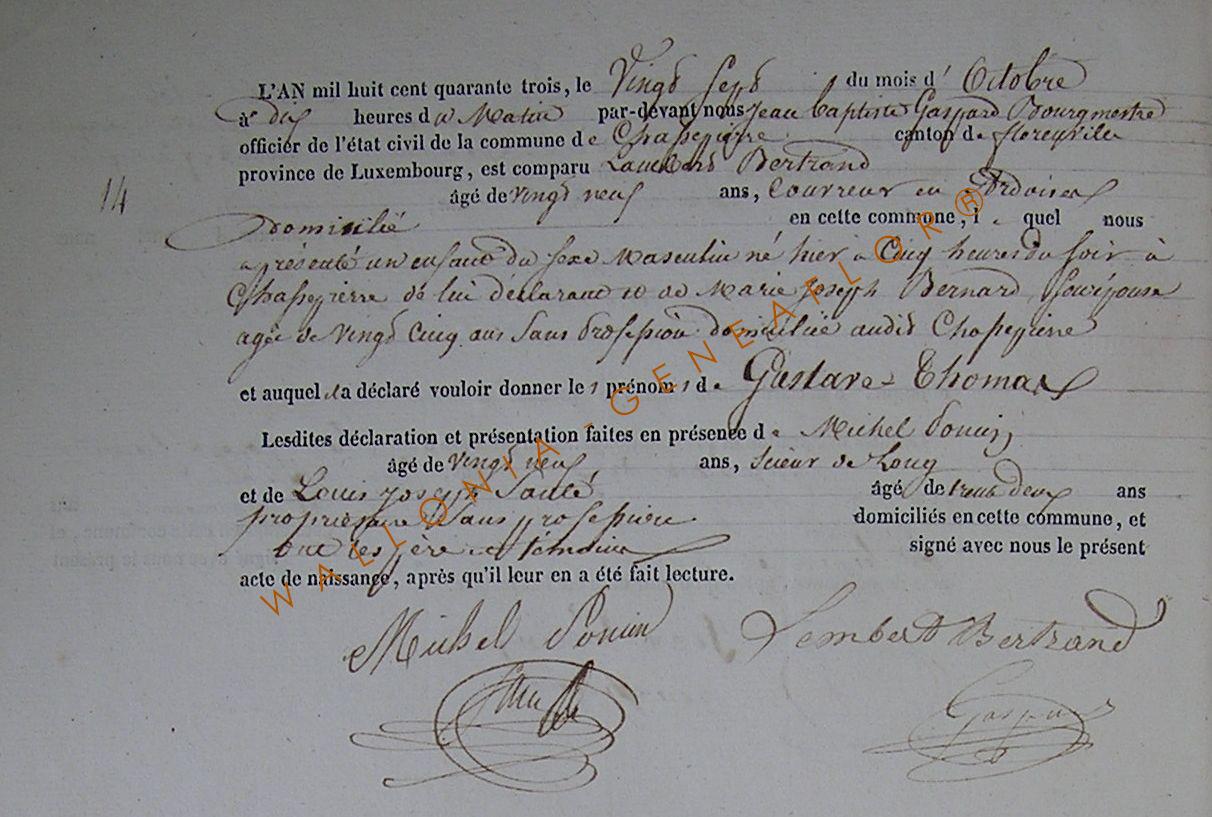 L'AN mil huit cent quarante trois, le Vingt Sept du mois d' Octobre
à dix heures du Matin par-devant nous Jean Baptiste Gaspard Bourgmestre
officier de l'état civil de la commune de Chassepierre canton de florenville
province de Luxembourg, est comparu Lambert Bertrand
14
âgé de vingt neuf ans, Couvreur en Ardoises
Domicilié en cette commune, le quel nous
a présenté un enfant du sexe Masculin né hier à Cinq heures du soir à
Chassepierre de lui déclarant et de Marie Joseph Bernard, son épouse
agée de vingt Cinq ans Sans Profession domiciliée audit Chassepierre
et auquel il a déclaré vouloir donner les prénoms de Gustave Thomas
Lesdites déclaration et présentation faites en présence de Michel Poncin,
âgé de vingt neuf, ans, Scieur de Long
et de Louis Joseph Sauté âgé de trente deux ans
propriétaire Sans profession domiciliés en cette commune, et
ont les père et témoins signé avec nous le présent
acte de naissance, après qu'il leur en a été fait lecture.
Michel Poncin Lembert Bertrand
Gaspard
WALLONIA - GENEAFLOR ®